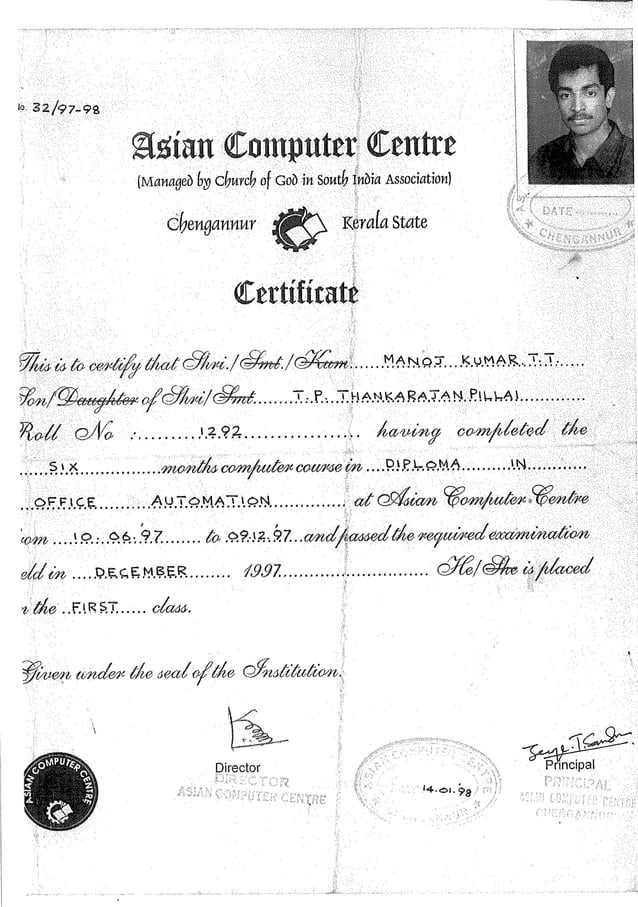 No. 32/97-98
Asian Computer Centre
(Managed by Church of God in South India Association)
Chengannur Kerala State
Certificate
This is to certify that Shri./Smt./Kum......MANOJ KUMAR.T.T.....
Son/Daughter of Shri/Smt.........T.P. THANKARAJAN PILLAI............
Roll No :.........1292.................. having completed the
....SIX............months computer course in...DIPLOMA.......IN.........
..OFFICE......AUTOMATION............ at Asian Computer Centre
om ...10.06.'97....... to 09.12.'97...and passed the required examination
eld in ....DECEMBER....... 1997........................ He/She is placed
the ..FIRST...... class.
Given under the seal of the Institution.
DATE
CHENGANNUR
Director
DIRECTOR
ASIAN COMPUTER CENTRE
ASIAN COMPUTER CENTRE
ASIAN COMPUTER CENTRE
14.01.'98
Principal
PRINCIPAL
ASIAN COMPUTER CENTRE
CHENGANNUR